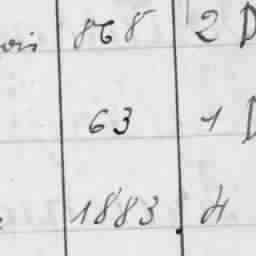 868 2 D
63 1 D
1883 4